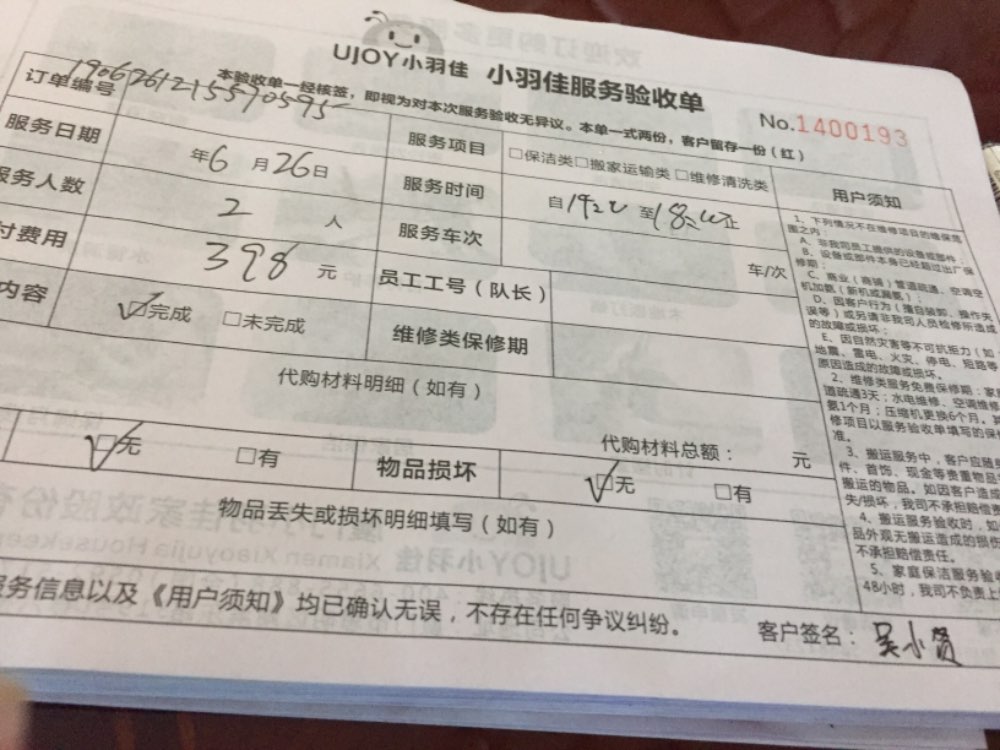 UJOY小羽佳 小羽佳服务验收单
本验收单一经核签，即视为对本次服务验收无异议。本单一式两份，客户留存一份（红）
No.1400193
订单编号
服务项目 □保洁类□搬家运输类 □维修清洗类
服务日期 年6月26日
服务时间 自 至
服务人数 2 人
服务车次 车/次
付费用 398 元
员工工号（队长）
内容 ☑完成 □未完成
维修类保修期
代购材料明细（如有）
代购材料总额： 元
☑无 □有 物品损坏 ☑无 □有
物品丢失或损坏明细填写（如有）
服务信息以及《用户须知》均已确认无误，不存在任何争议纠纷。
客户签名：吴小贤
用户须知
1、下列情况不在维修项目的维保范
围之内：
A、非我司员工提供的设备或部件；
B、设备或部件本身已经超过出厂保
修期；
C、商业（商铺）管道疏通、空调空
机加氨（新机或漏氨）；
D、因客户行为（擅自装卸、操作失
误等）或另请非我司人员检修所造成
的故障或损坏；
E、因自然灾害等不可抗拒力（如
地震、雷电、火灾、停电、短路等
原因造成的故障或损坏。
2、维修类服务免费保修期：家庭
道疏通3天；水电维修、空调维修
氨1个月；压缩机更换6个月。
修项目以服务验收单填写的保
准。
3、搬运服务中，客户应随
件、首饰、现金等贵重物品
搬运的物品。如因客户造成
失/损坏，我司不承担赔偿责
4、搬运服务验收时，如
品外观无搬运造成的损伤
不承担赔偿责任。
5、家庭保洁服务验收
48小时，我司不负责上